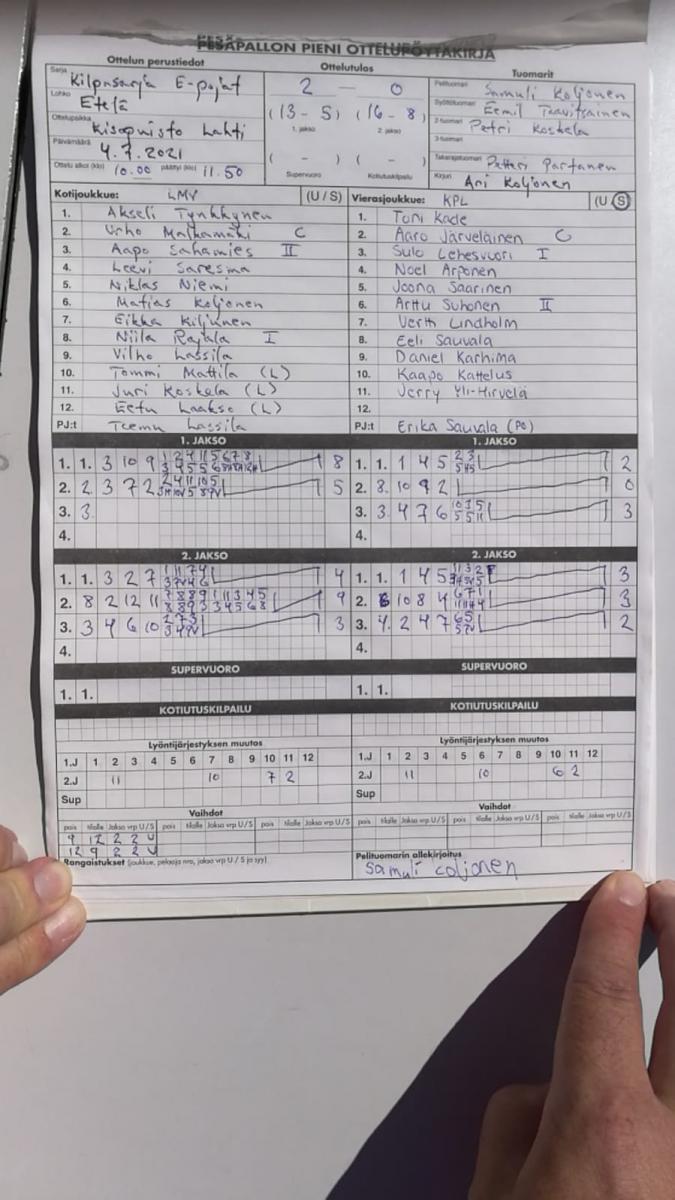 PESÄPALLON PIENI OTTELUPÖYTÄKIRJA
Ottelun perustiedot
Ottelutulos
Tuomarit
Sarja Kilpasarja E-pojat
Lohko Etelä
Ottelupaikka Kisapuisto Lahti
Päivämäärä 4.7.2021
Ottelu alkoi (klo) 10.00 päättyi (klo) 11.50
2 – 0
(13 - 5) (16 - 8)
1. jakso 2. jakso
( - ) ( - )
Supervuoro Kotiutuskilpailu
Pelituomari Samuli Koljonen
Syöttötuomari Eemil Taavitsainen
2-tuomari Petri Koskela
3-tuomari
Takarajatuomari Petteri Partanen
Kirjuri Ari Koljonen
Kotijoukkue: LMV (U / S)
1. Akseli Tynkkynen
2. Urho Malkamäki C
3. Aapo Sahamies II
4. Leevi Saresma
5. Niklas Niemi
6. Matias Koljonen
7. Eikka Kiljunen
8. Niila Rajala I
9. Vilho Lassila
10. Tommi Mattila (L)
11. Juri Koskela (L)
12. Eetu Laakso (L)
PJ:t Teemu Lassila
Vierasjoukkue: KPL (U / S)
1. Toni Kade
2. Aaro Järveläinen C
3. Sulo Lehesvuori I
4. Noel Arponen
5. Joona Saarinen
6. Arttu Suhonen II
7. Vertti Lindholm
8. Eeli Sauvala
9. Daniel Karhima
10. Kaapo Kattelus
11. Jerry Yli-Hirvelä
12.
PJ:t Erika Sauvala (PO)
1. JAKSO
1. 1. 3 10 9 8
2. 2 3 7 2 5
3. 3
4.
1. JAKSO
1. 1. 1 4 5 2
2. 8. 10 9 2 0
3. 3. 4 7 6 3
4.
2. JAKSO
1. 1. 3 2 7 4
2. 8 2 12 11 9
3. 3 4 6 10 3
4.
2. JAKSO
1. 1. 1 4 5 3
2. 6 10 8 4 3
3. 4. 2 4 7 2
4.
SUPERVUORO
1. 1.
SUPERVUORO
1. 1.
KOTIUTUSKILPAILU
KOTIUTUSKILPAILU
Lyöntijärjestyksen muutos
1.J 1 2 3 4 5 6 7 8 9 10 11 12
2.J 11 10 7 2
Sup
Lyöntijärjestyksen muutos
1.J 1 2 3 4 5 6 7 8 9 10 11 12
2.J 11 10 6 2
Sup
Vaihdot
pois tilalle Jakso vrp U / S pois tilalle Jakso vrp U / S pois tilalle Jakso vrp U / S
9 12 2 2 U
12 9 2 2 U
Rangaistukset (joukkue, pelaaja nro, jakso vrp U / S ja syy)
Vaihdot
pois tilalle Jakso vrp U / S pois tilalle Jakso vrp U / S pois tilalle Jakso vrp U / S
Pelituomarin allekirjoitus
Samuli Coljonen